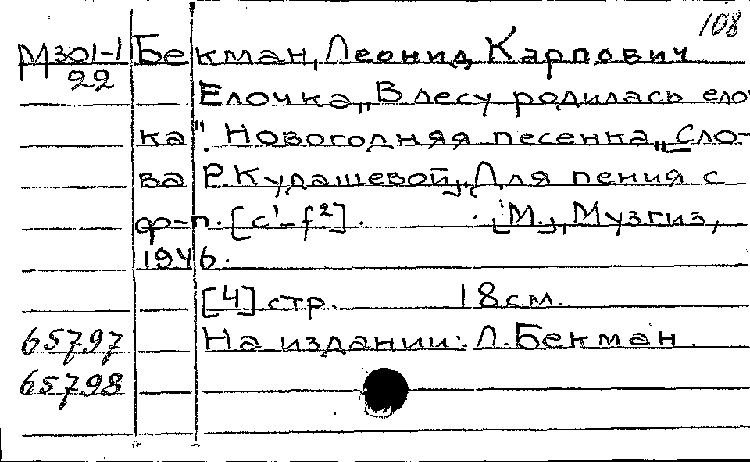 108
М301-1 Бекман, Леонид Карпович
22
Елочка „В лесу родилась елоч
ка". Новогодняя песенка „Сло-
ва Р. Кудашевой„. Для пения с
ф-п. [c¹-f²]. [М.], Музгиз,
1946.
[4] стр. 18 см.
65797 На издании: Л. Бекман.
65798